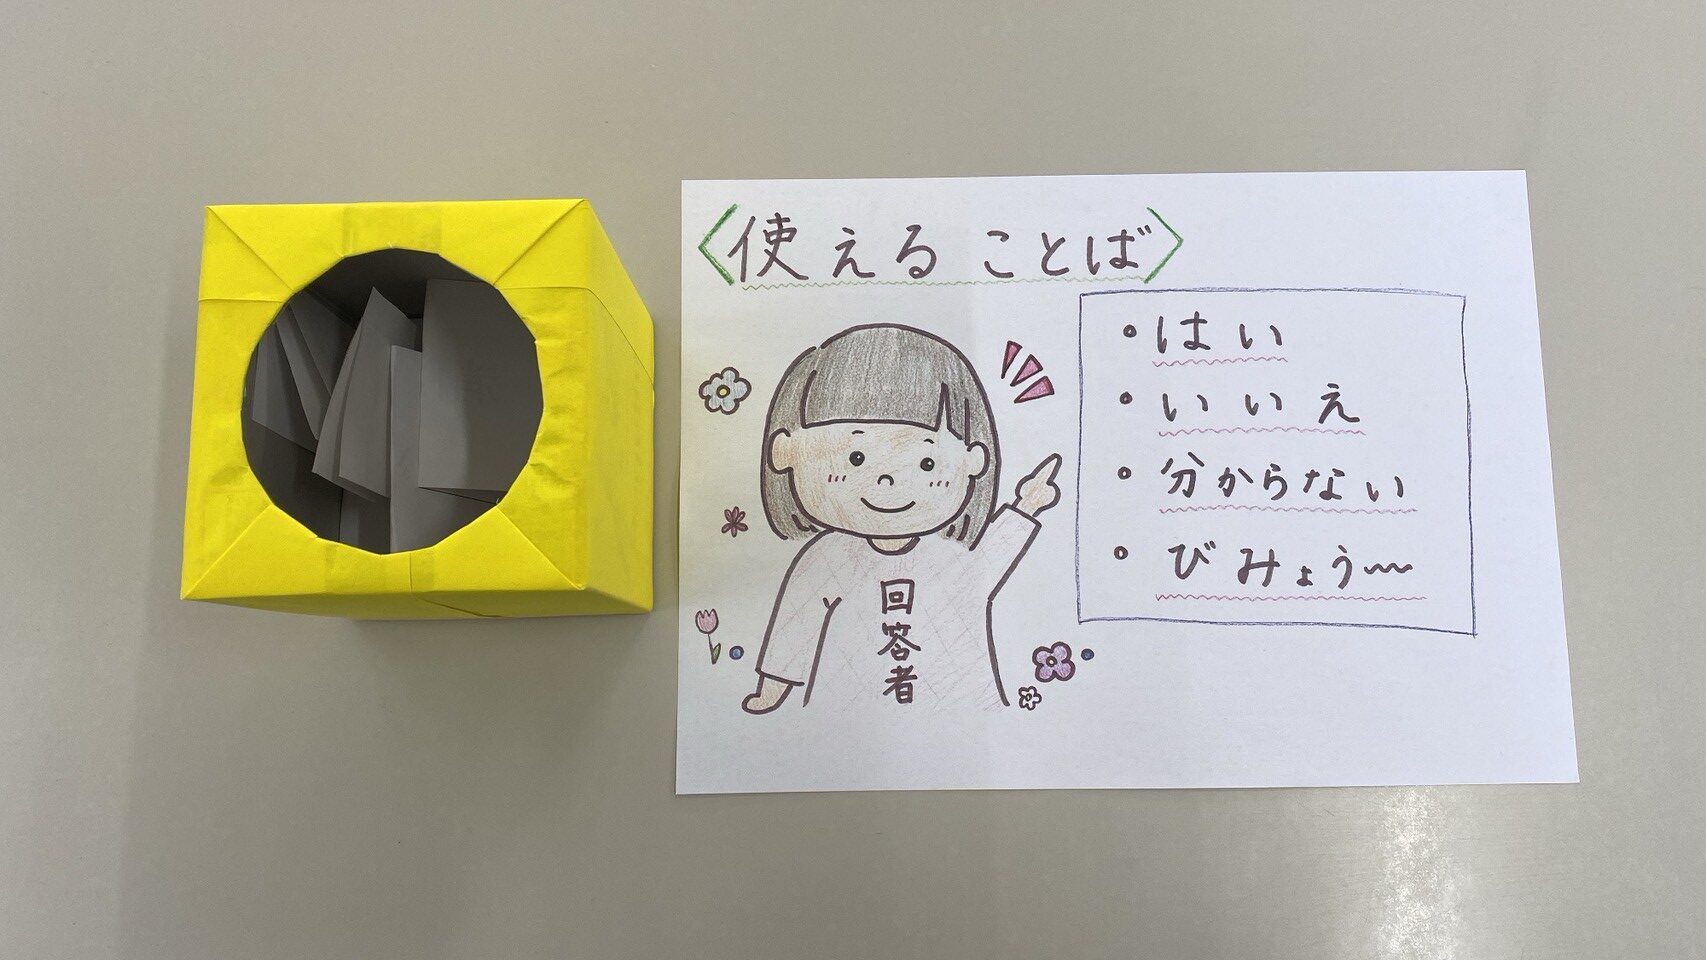 〈使えることば〉
・はい
・いいえ
・分からない
・びみょう〰
回答者